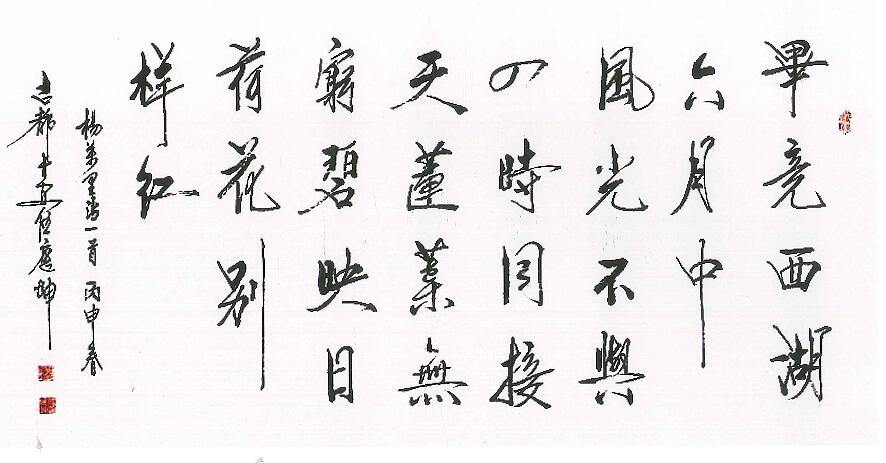 畢竟西湖
六月中
風光不與
四時同接
天蓮葉無
窮碧映日
荷花別
样红
楊萬里詩一首 丙申春
都 應坤